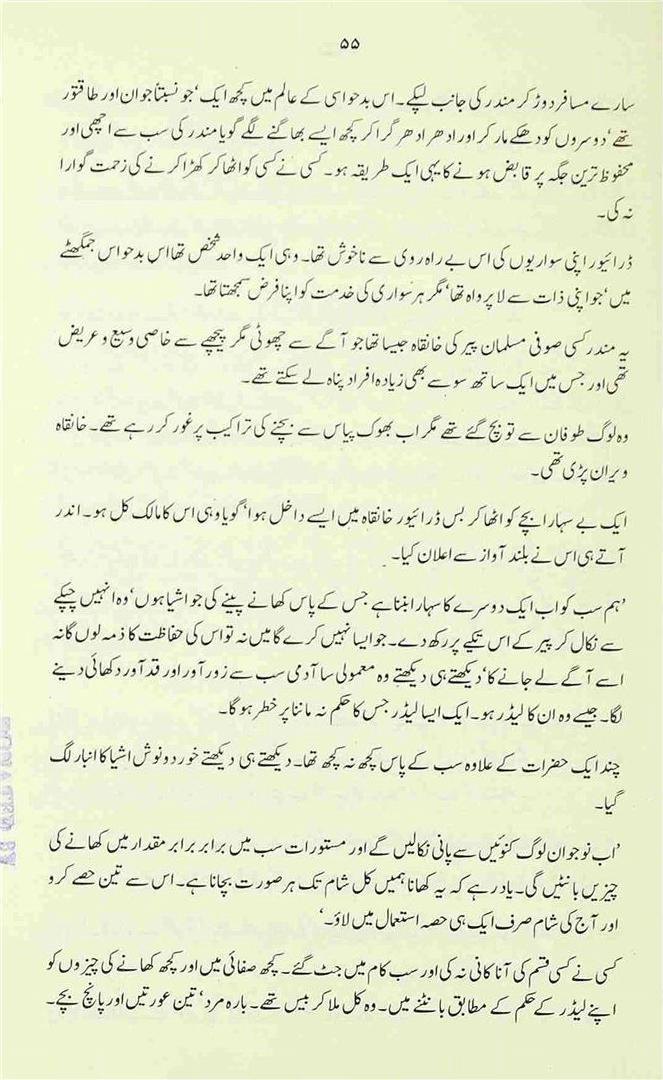 ۵۵
سارے مسافر دوڑ کر مندر کی جانب لپکے۔ اس بدحواسی کے عالم میں کچھ ایک ‘جو نسبتاً جوان اور طاقتور
تھے‘ دوسروں کو دھکے مار کر اور ادھر ادھر گرا کر کچھ ایسے بھاگنے لگے گویا مندر کی سب سے اچھی اور
محفوظ ترین جگہ پر قابض ہونے کا یہی ایک طریقہ ہو۔ کسی نے کسی کو اٹھا کر کھڑا کرنے کی زحمت گوارا
نہ کی۔
ڈرائیور اپنی سواریوں کی اس بے راہ روی سے ناخوش تھا۔ وہی ایک واحد شخص تھا اس بدحواس جمگھٹے
میں ‘جو اپنی ذات سے لاپرواہ تھا‘ مگر ہر سواری کی خدمت کو اپنا فرض سمجھتا تھا۔
یہ مندر کسی صوفی مسلمان پیر کی خانقاہ جیسا تھا جو آگے سے چھوٹی مگر پیچھے سے خاصی وسیع و عریض
تھی اور جس میں ایک ساتھ سو سے بھی زیادہ افراد پناہ لے سکتے تھے۔
وہ لوگ طوفان سے تو بچ گئے تھے مگر اب بھوک پیاس سے بچنے کی تراکیب پر غور کر رہے تھے۔ خانقاہ
ویران پڑی تھی۔
ایک بے سہارا بچے کو اٹھا کر بس ڈرائیور خانقاہ میں ایسے داخل ہوا‘ گویا وہی اس کا مالک کل ہو۔ اندر
آتے ہی اس نے بلند آواز سے اعلان کیا۔
’ہم سب کو اب ایک دوسرے کا سہارا بننا ہے جس کے پاس کھانے پینے کی جو اشیا ہوں‘ وہ انہیں چپکے
سے نکال کر پیر کے اس تکیے پر رکھ دے۔ جو ایسا نہیں کرے گا میں نہ تو اس کی حفاظت کا ذمہ لوں گا نہ
اسے آگے لے جانے کا‘ دیکھتے ہی دیکھتے وہ معمولی سا آدمی سب سے زور آور اور قد آور دکھائی دینے
لگا۔ جیسے وہ ان کا لیڈر ہو۔ ایک ایسا لیڈر جس کا حکم نہ ماننا پر خطر ہو گا۔
چند ایک حضرات کے علاوہ سب کے پاس کچھ نہ کچھ تھا۔ دیکھتے ہی دیکھتے خورد و نوش اشیا کا انبار لگ
گیا۔
’اب نوجوان لوگ کنوئیں سے پانی نکالیں گے اور مستورات سب میں برابر برابر مقدار میں کھانے کی
چیزیں بانٹیں گی۔ یاد رہے کہ یہ کھانا ہمیں کل شام تک ہر صورت بچانا ہے۔ اس سے تین حصے کرو
اور آج کی شام صرف ایک ہی حصہ استعمال میں لاؤ۔‘
کسی نے کسی قسم کی آنا کانی نہ کی اور سب کام میں جٹ گئے۔ کچھ صفائی میں اور کچھ کھانے کی چیزوں کو
اپنے لیڈر کے حکم کے مطابق بانٹنے میں۔ وہ کل ملا کر بیس تھے۔ بارہ مرد‘ تین عورتیں اور پانچ بچے۔